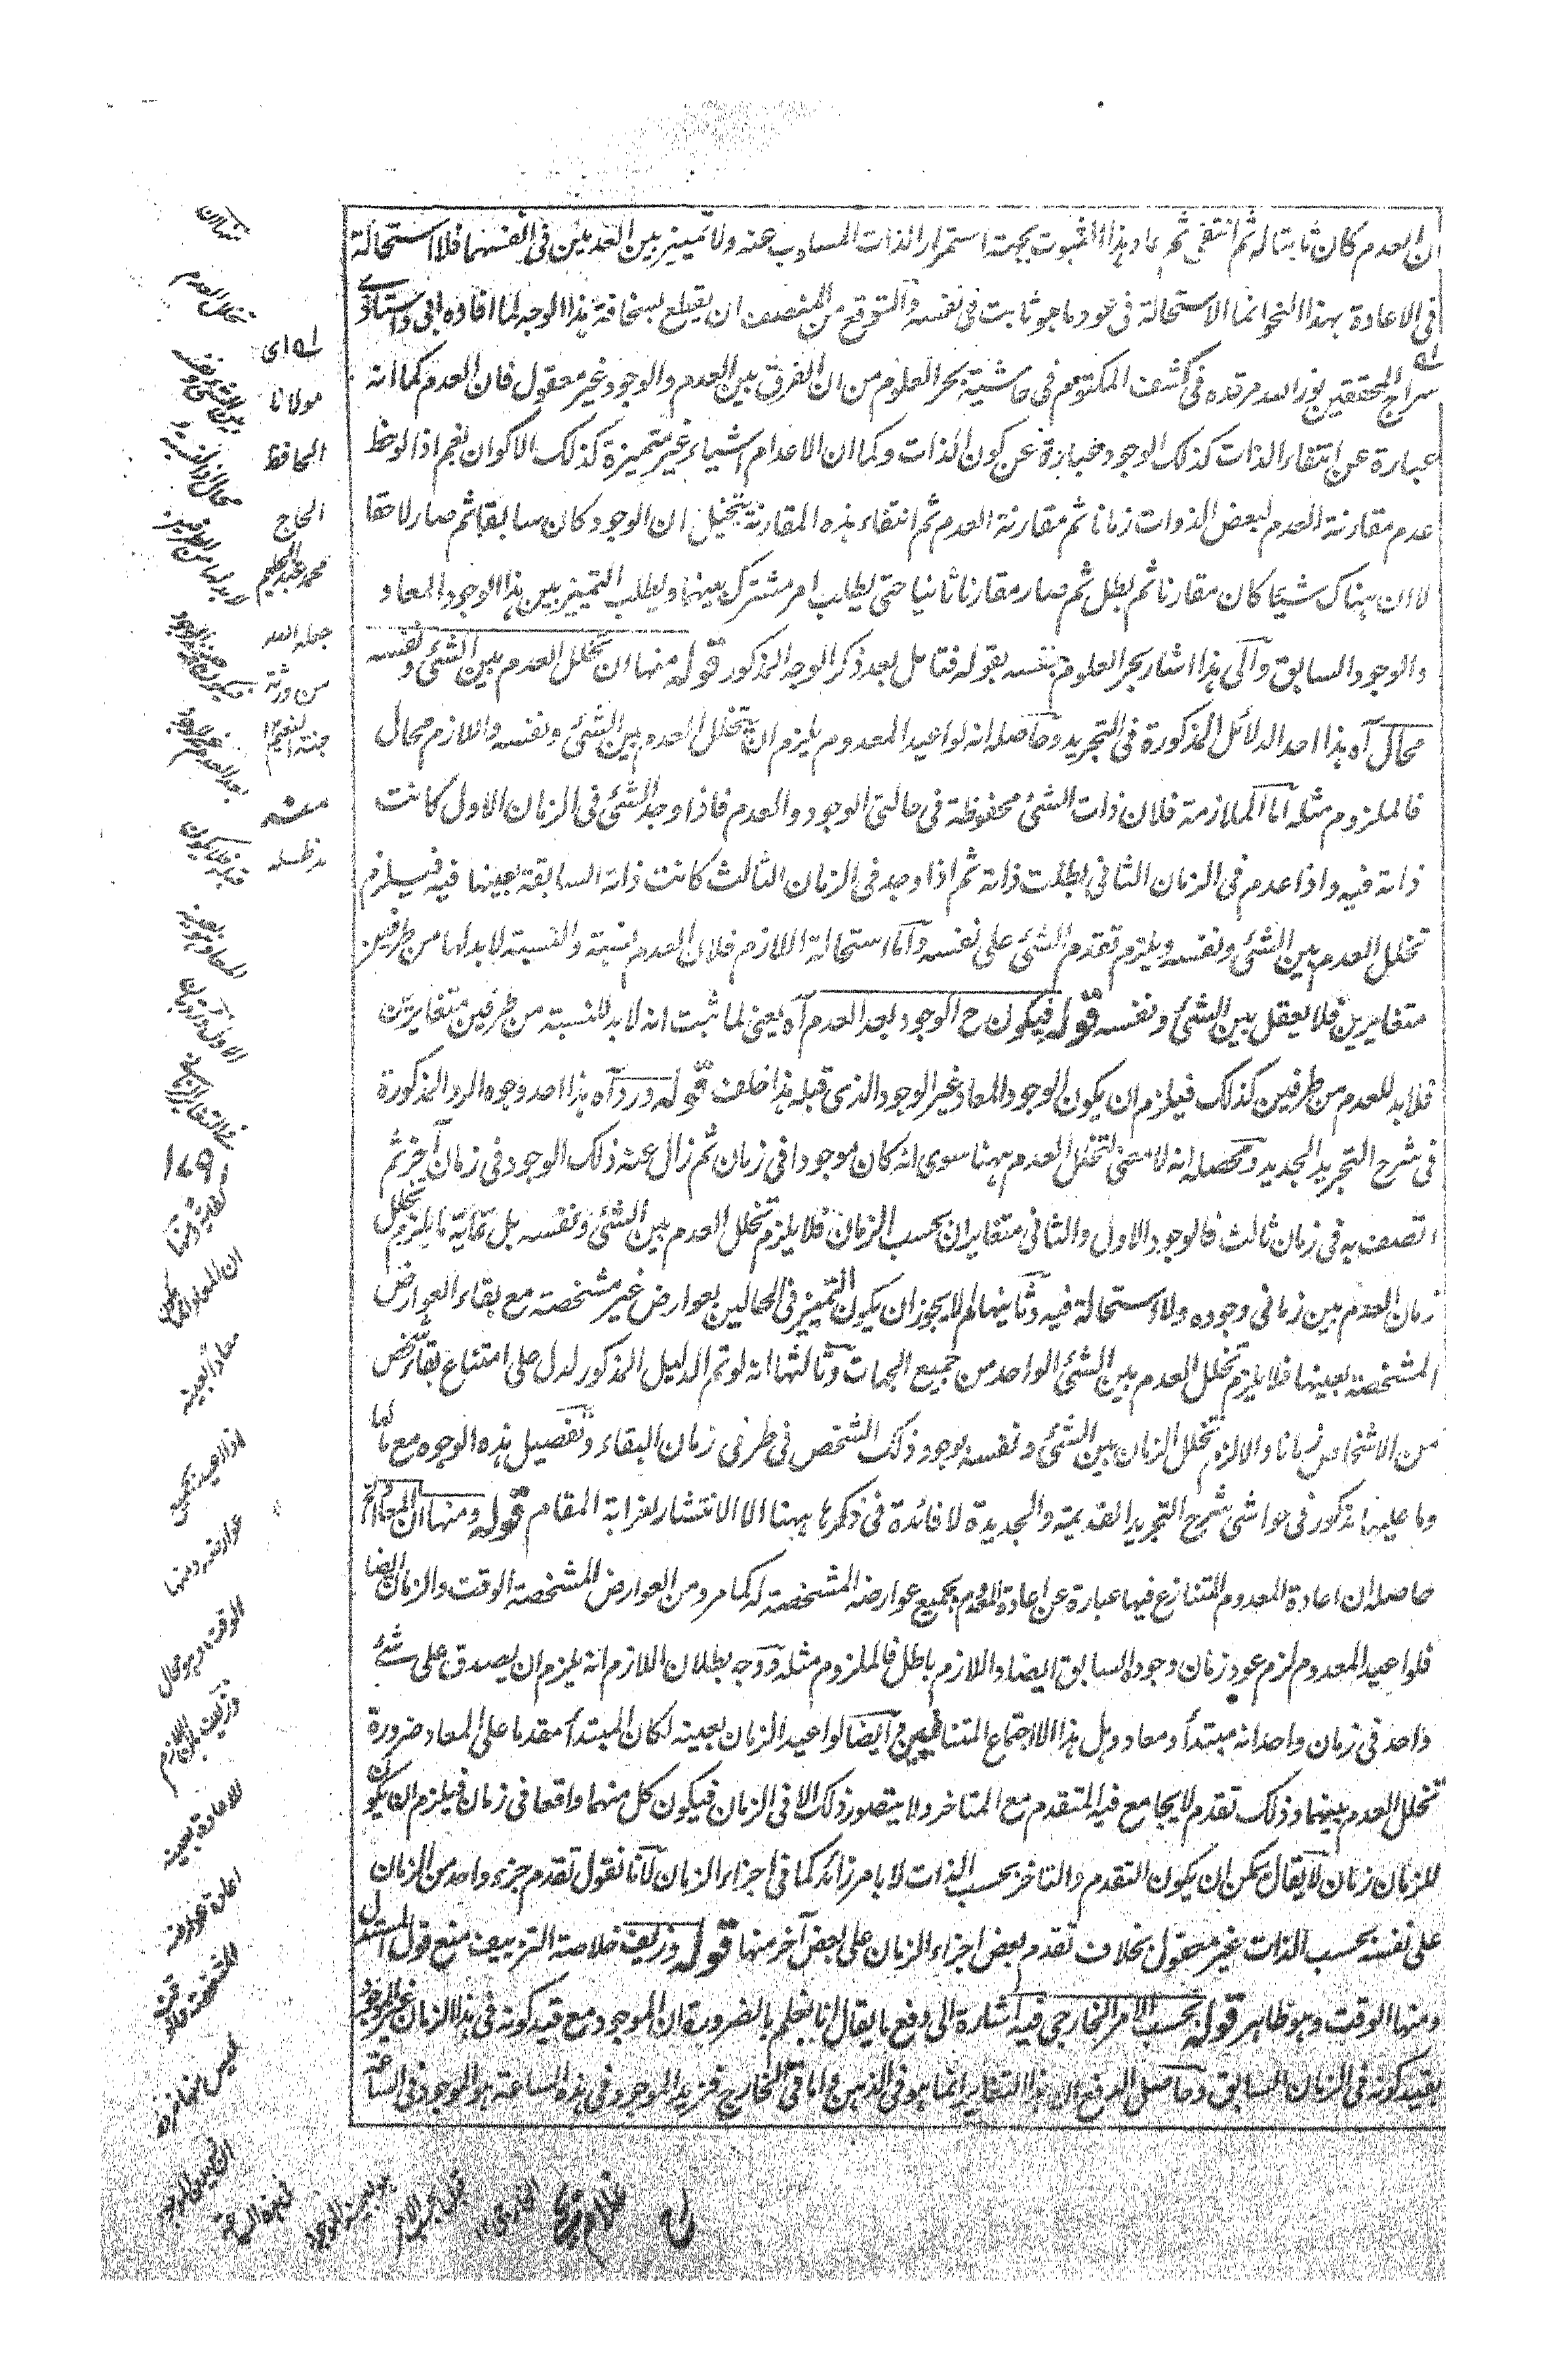 ان العدم كان ثابتا له ثم انتفى ثم عاد هذا الثبوت بجهة استمرار الذات المسلوب عنه ولا تمييز بين العدمين فى انفسهما فلا استحالة
فى الاعادة بهذا النحو انما الاستحالة فى عود ما هو ثابت فى نفسه والمتوقع من المنصف ان يقطع بسخافة هذا الوجه لما افاده ابى واستاذى
سراج المحققين نور الله مرقده فى كشف المكتوم فى حاشية بحر العلوم من ان الفرق بين العدم والوجود غير معقول فان العدم كما انه
عبارة عن انتفاء الذات كذلك الوجود عبارة عن كون الذات وكما ان الاعدام اشياء غير متميزة كذلك الاكوان نعم اذا لوحظ
عدم مقارنة العدم لبعض الذوات زمانا ثم مقارنة العدم ثم انتفاء هذه المقارنة يتخيل ان الوجود كان سابقا ثم صار لاحقا
لا ان هناك شيئا كان مقارنا ثم بطل ثم صار مقارنا ثانيا حتى يطلب امر مشترك بينهما ويطلب التمييز بين هذا الوجود المعاد
والوجود السابق والى هذا اشار بحر العلوم بنفسه بقوله فتامل بعد ذكر الوجه المذكور قوله منها ان تخلل العدم بين الشئ ونفسه
محال آه هذا احد الدلائل المذكورة فى التجريد وحاصله انه لو اعيد المعدوم يلزم ان يتخلل العدم بين الشئ ونفسه واللازم محال
فالملزوم مثله اما الملازمة فلان ذات الشئ محفوظة فى حالتى الوجود والعدم فاذا وجد الشئ فى الزمان الاول كانت
ذاته فيه واذا عدم فى الزمان الثانى بطلت ذاته ثم اذا وجد فى الزمان الثالث كانت ذاته السابقة بعينها فيه فيلزم
تخلل العدم بين الشئ ونفسه ويلزم تقدم الشئ على نفسه واما استحالة اللازم فلان العدم نسبة والنسبة لا بد لها من طرفين
متغايرين فلا يعقل بين الشئ ونفسه قوله فيكون ح الوجود بعد العدم آه يعنى لما ثبت انه لا بد للنسبة من طرفين متغايرين
فلا بد للعدم من طرفين كذلك فيلزم ان يكون الوجود المعاد غير الوجود الذى قبله هذا خلف قوله ورد آه هذا احد وجوه الرد المذكورة
فى شرح التجريد الجديد ومحصله انه لا معنى لتخلل العدم ههنا سوى انه كان موجودا فى زمان ثم زال عنه ذلك الوجود فى زمان آخر ثم
اتصف به فى زمان ثالث فالوجود الاول والثانى متغايران بحسب الزمان فلا يلزم تخلل العدم بين الشئ ونفسه بل غاية ما يلزم تخلل
زمان العدم بين زمانى وجوده ولا استحالة فيه وثانيها لم لا يجوز ان يكون التميز فى الحالين بعوارض غير مشخصة مع بقاء العوارض
المشخصة بعينها فلا يلزم تخلل العدم بين الشئ الواحد من جميع الجهات وثالثها انه لو تم الدليل المذكور لدل على امتناع بقاء شخص
من الاشخاص زمانا والا لزم تخلل الزمان بين الشئ ونفسه لوجود ذلك الشخص فى طرفى زمان البقاء وتفصيل هذه الوجوه مع ما لها
وما عليها مذكور فى حواشى شرح التجريد القديمة والجديدة لا فائدة فى ذكرها ههنا الا الانتشار لغرابة المقام قوله ومنها ان المعاد الخ
حاصله ان اعادة المعدوم المتنازع فيها عبارة عن اعادة المعدوم بجميع عوارضه المشخصة له كما مر ومن العوارض المشخصة الوقت والزمان ايضا
فلو اعيد المعدوم لزم عود زمان وجوده السابق ايضا واللازم باطل فالملزوم مثله ووجه بطلان اللازم انه يلزم ان يصدق على شئ
واحد فى زمان واحد انه مبتدأ ومعاد وهل هذا الا اجتماع المتنافيين وايضا لو اعيد الزمان بعينه لكان المبتدأ مقدما على المعاد ضرورة
تخلل العدم بينهما وذلك تقدم لا يجامع فيه المتقدم مع المتاخر ولا يتصور ذلك الا فى الزمان فيكون كل منهما واقعا فى زمان فيلزم ان يكون
للزمان زمان لا يقال يمكن ان يكون التقدم والتاخر بحسب الذات لا بامر زائد كما فى اجزاء الزمان لانا نقول تقدم جزء واحد من الزمان
على نفسه بحسب الذات غير معقول بخلاف تقدم بعض اجزاء الزمان على بعض آخر منها قوله وزيف خلاصة التزييف منع قول المستدل
ومنها الوقت وهو ظاهر قوله بحسب الامر الخارجى فيه اشارة الى دفع ما يقال انا نعلم بالضرورة ان الموجود مع قيد كونه فى هذا الزمان غير الموجود
بقيد كونه فى الزمان السابق وحاصل الدفع ان هذا التغاير انما هو فى الذهن واما فى الخارج فزيد الموجود فى هذه الساعة هو الموجود فى الساعة
له اى
مولانا
الحافظ
الحاج
محمد عبد الحليم
جعله الله
من ورثة
جنة النعيم
منه
مد ظله